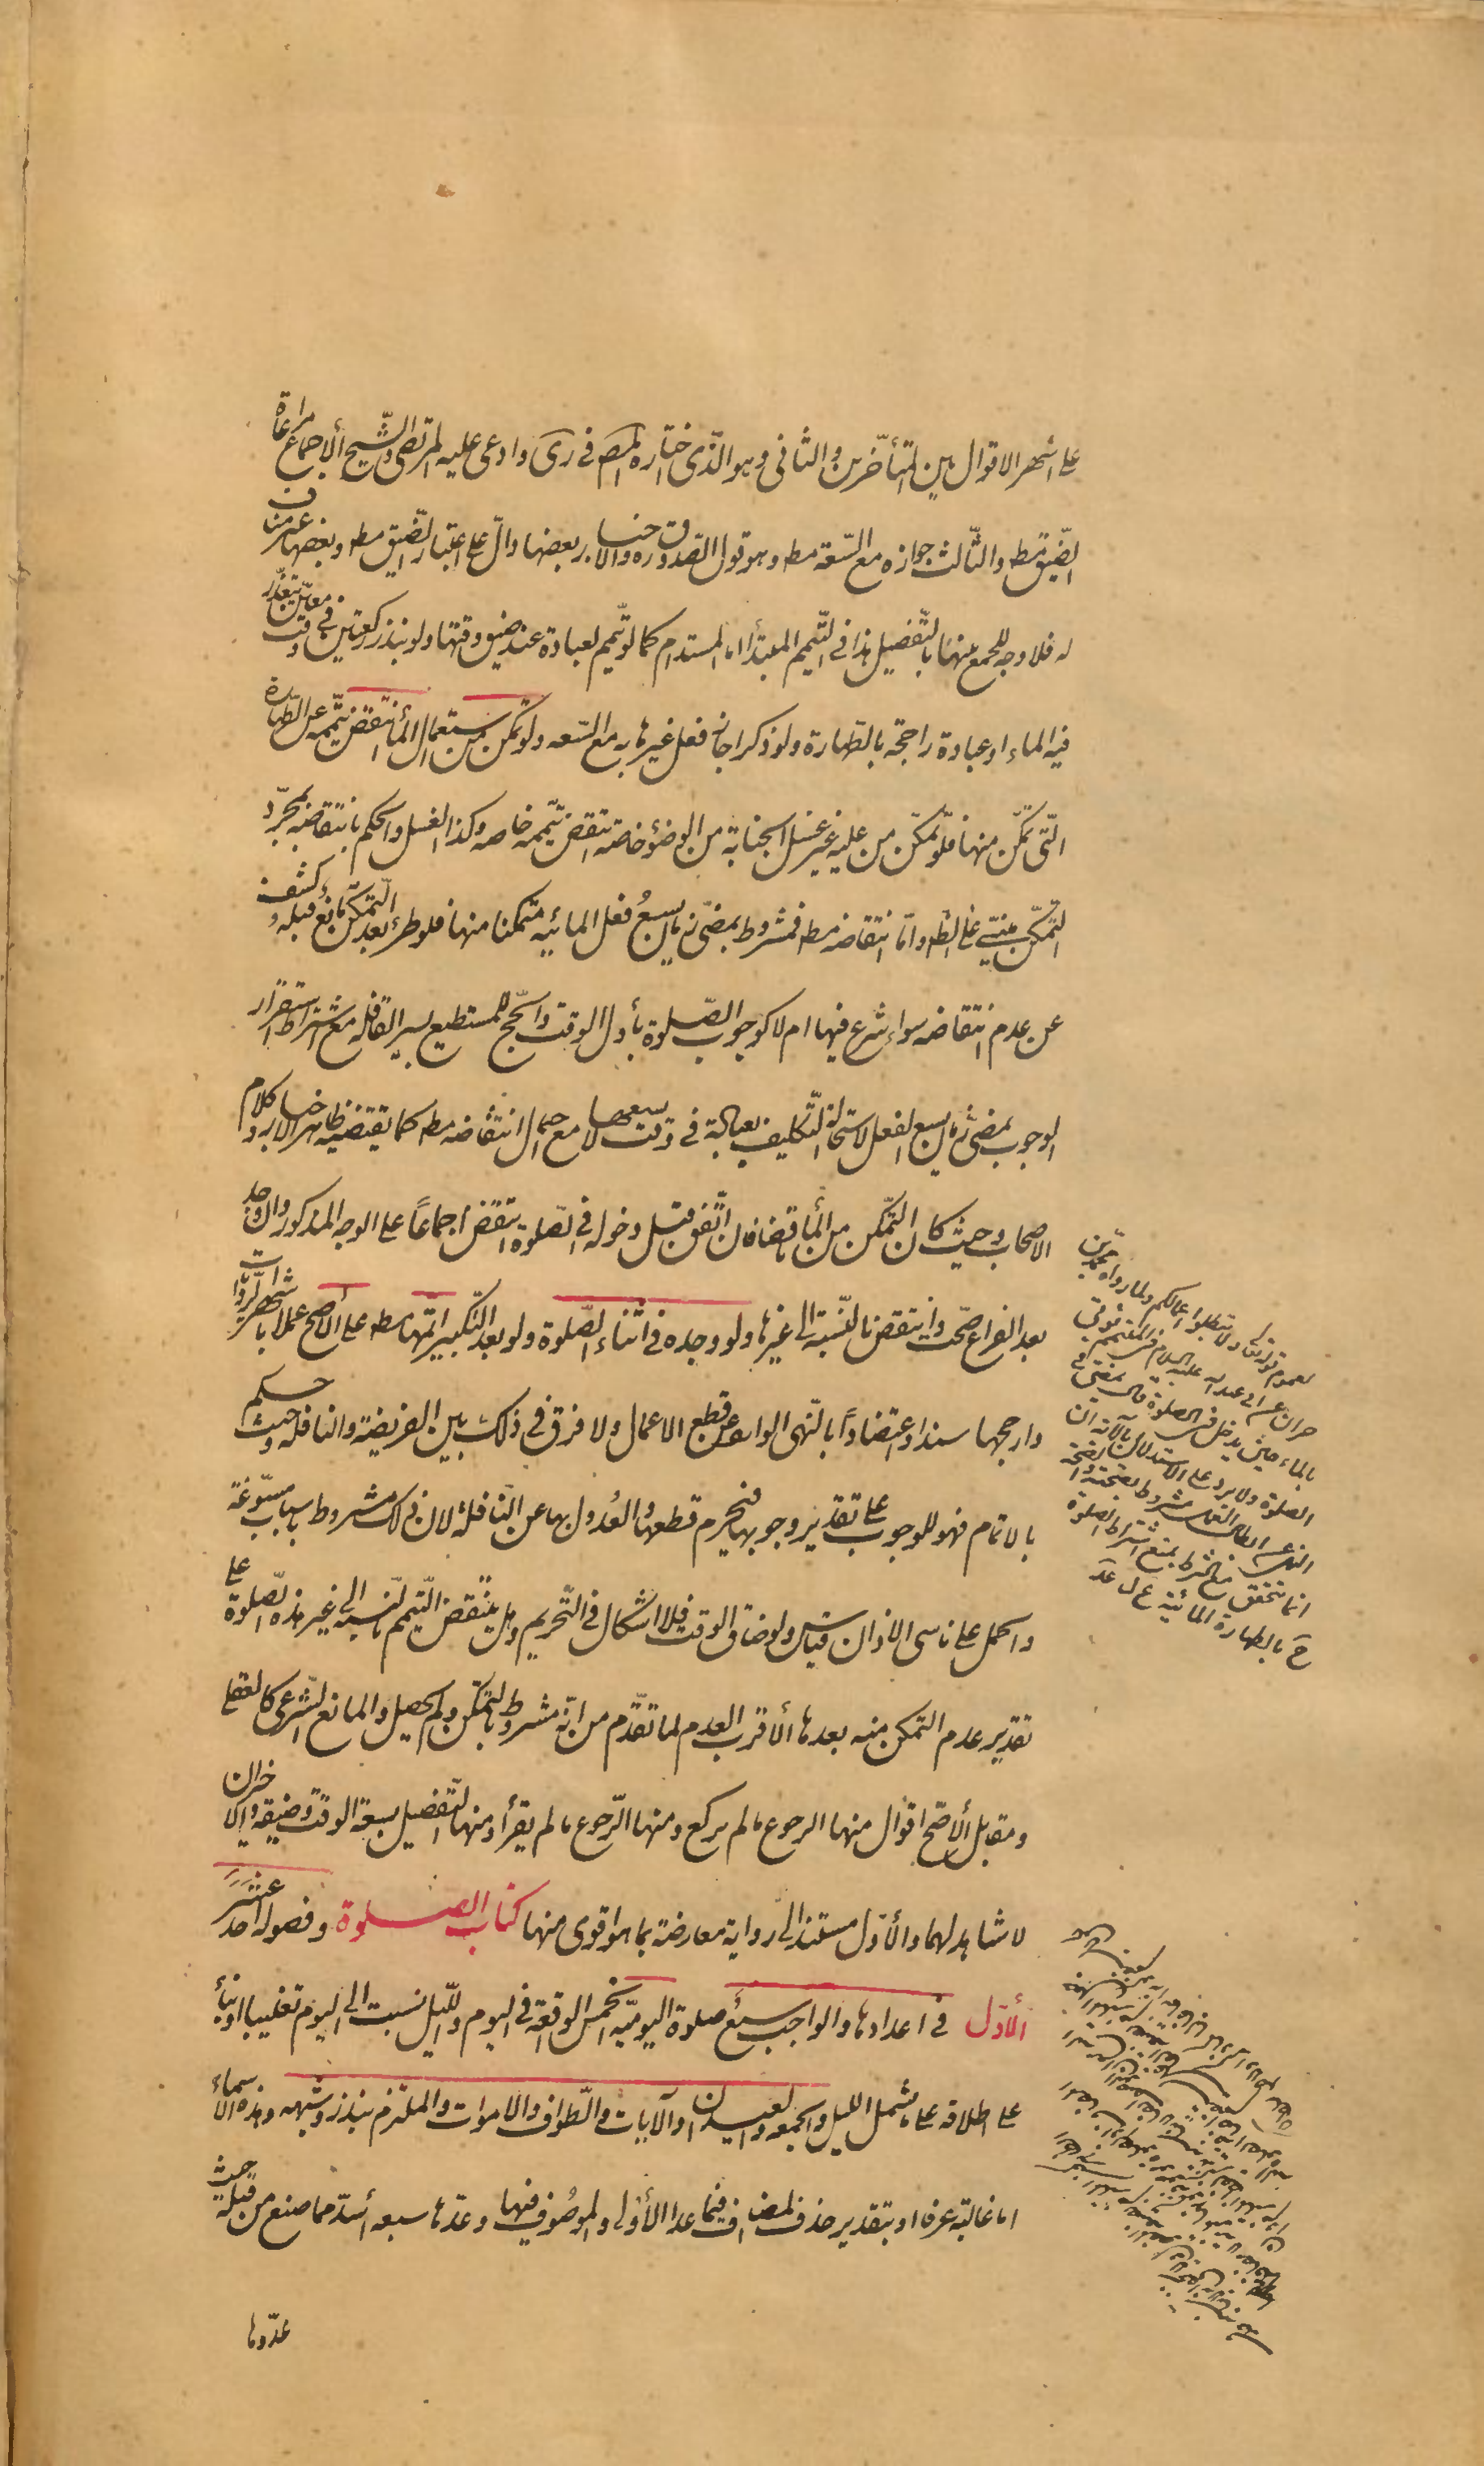 على اشهر الاقوال بين المتأخرين والثاني وهو الذى اختاره المصَ في رىَ وادعى عليه المرتضى والشيخ الاجماع مراعاة
الضيق مط والثالث جوازه مع السّعة مط وهو قول الصدوق ره والاخبار بعضها دالّ على اعتبار الضّيق مط وبعضها غير مناف
له فلا وجه للجمع بينهما بالتّفصيل هذا في التّيمم المبتدأ اما المستدام كما لو تيمم لعبادة عند ضيق وقتها ولو بنذر ركعتين في وقت معيّن يتعذّر
فيه الماء او عبادة راجحة بالطهارة ولو ذكرا جاز فعل غيرها به مع السّعه ولو تمكّن من استعمال الماء انتقض تيممه عن الطهارة
الّتى تمكّن منها فلو تمكّن من عليه غير غسل الجنابة من الوضوء خاصّة انتقض تيممه خاصه وكذا الغسل والحكم بانتقاضه بمجرّد
التمكّن مبنىّ على الظ واما انتقاضه مط فمشروط بمضىّ زمان يسع فعل المائيه متمكنا منها فلو طرء بعد التمكّن مانع قبله كشف
عن عدم انتقاضه سواء شرع فيها ام لا كوجوب الصّلوة بأول الوقت والحّج للمستطيع بسير القافله مع اشتراط استقرار
الوجوب بمضى زمان يسع الفعل لاستحالة التّكليف بعبادة في وقت لا يسعها مع احتمال انتقاضه مط كما يقتضيه ظاهر الاخبار وكلام
الاصحاب وحيث كان التمكّن من الماء ناقضا فان اتّفق قبل دخوله في الصّلوة انتقض اجماعاً على الوجه المذكور وان وجده
بعد الفراغ صحّت وانتقض بالنّسبة الى غيرها ولو وجده في اثناء الصّلوة ولو بعد التّكبير اتمّها مط على الأصح عملا باشهر الرّوايات
وارجحها سندا واعتضاداً بالنّهى الوارد عن قطع الاعمال ولا فرق في ذلك بين الفريضة والنافلة وحيث حكم
بالاتمام فهو للوجوب على تقدير وجوبها فيحرم قطعها والعُدول بها عن النّافلة لان ذلك مشروط باسباب مسّوغة
والحمل على ناسى الاذان قياس ولو ضاق الوقت فلا اشكال في التّحريم وهل ينتقض التّيمم بالنّسبة الى غير هذه الصّلوة على
تقدير عدم التمكن منه بعدها الأقرب العدم لما تقدّم من انّه مشروط بالتمكّن ولم يحصل والمانع الشّرعى كالعقلى
ومقابل الأصّح اقوال منها الرجوع ما لم يركع ومنها الرّجوع ما لم يقرأ ومنها التّفصيل بسعة الوقت وضيقه والاخيران
لا شاهد لهما والأوّل مستند الى رواية معارضة بما هو اقوى منها كتاب الصلوة وفصوله احد عشر
الأوّل في اعدادها والواجب سبع صلوة اليوميّه الخمس الواقعة في اليوم واللّيل نسبت الى اليوم تغليبا او بناءً
على اطلاقه على ما يشمل الليل والجمعه والعيدان والآيات والطّواف والاموات والملتزم بنذر وشبهه وهذه الاسماء
اما غالبة عرفا او بتقدير حذف المضاف فيما عدا الأولى والموصُوف فيها وعدّها سبعه أسدّ مما صنع من قبله حيث
عدّوها
لعموم قوله تعا ولا تبطلوا اعمالكم ولما رواه محمد بن
حمران عن ابى عبد الله عليه السلام في المتيمم يؤتى
بالماء حين يدخل في الصلوة قال يمضى في
الصلوة ولا يرد على الاستدلال بالآية ان
النهى عن ابطال العمل مشروط بصحته والصحة
انما تتحقق مع الشرط بمنع اشتراط الصلوة
حَ بالطهارة المائية ع ل عَد